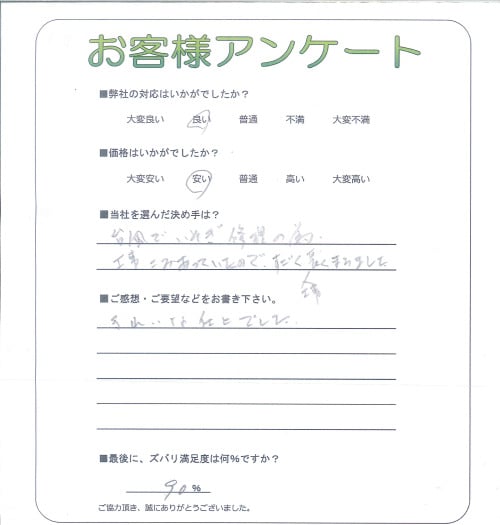 お客様アンケート
■弊社の対応はいかがでしたか？
大変良い 良い 普通 不満 大変不満
■価格はいかがでしたか？
大変安い 安い 普通 高い 大変高い
■当社を選んだ決め手は？
台風でいそぎ修理の為、
工事こみあっていたので、
工事
■ご感想・ご要望などをお書き下さい。
きれいな仕上でした。
■最後に、ズバリ満足度は何％ですか？
90 ％
ご協力頂き、誠にありがとうございました。